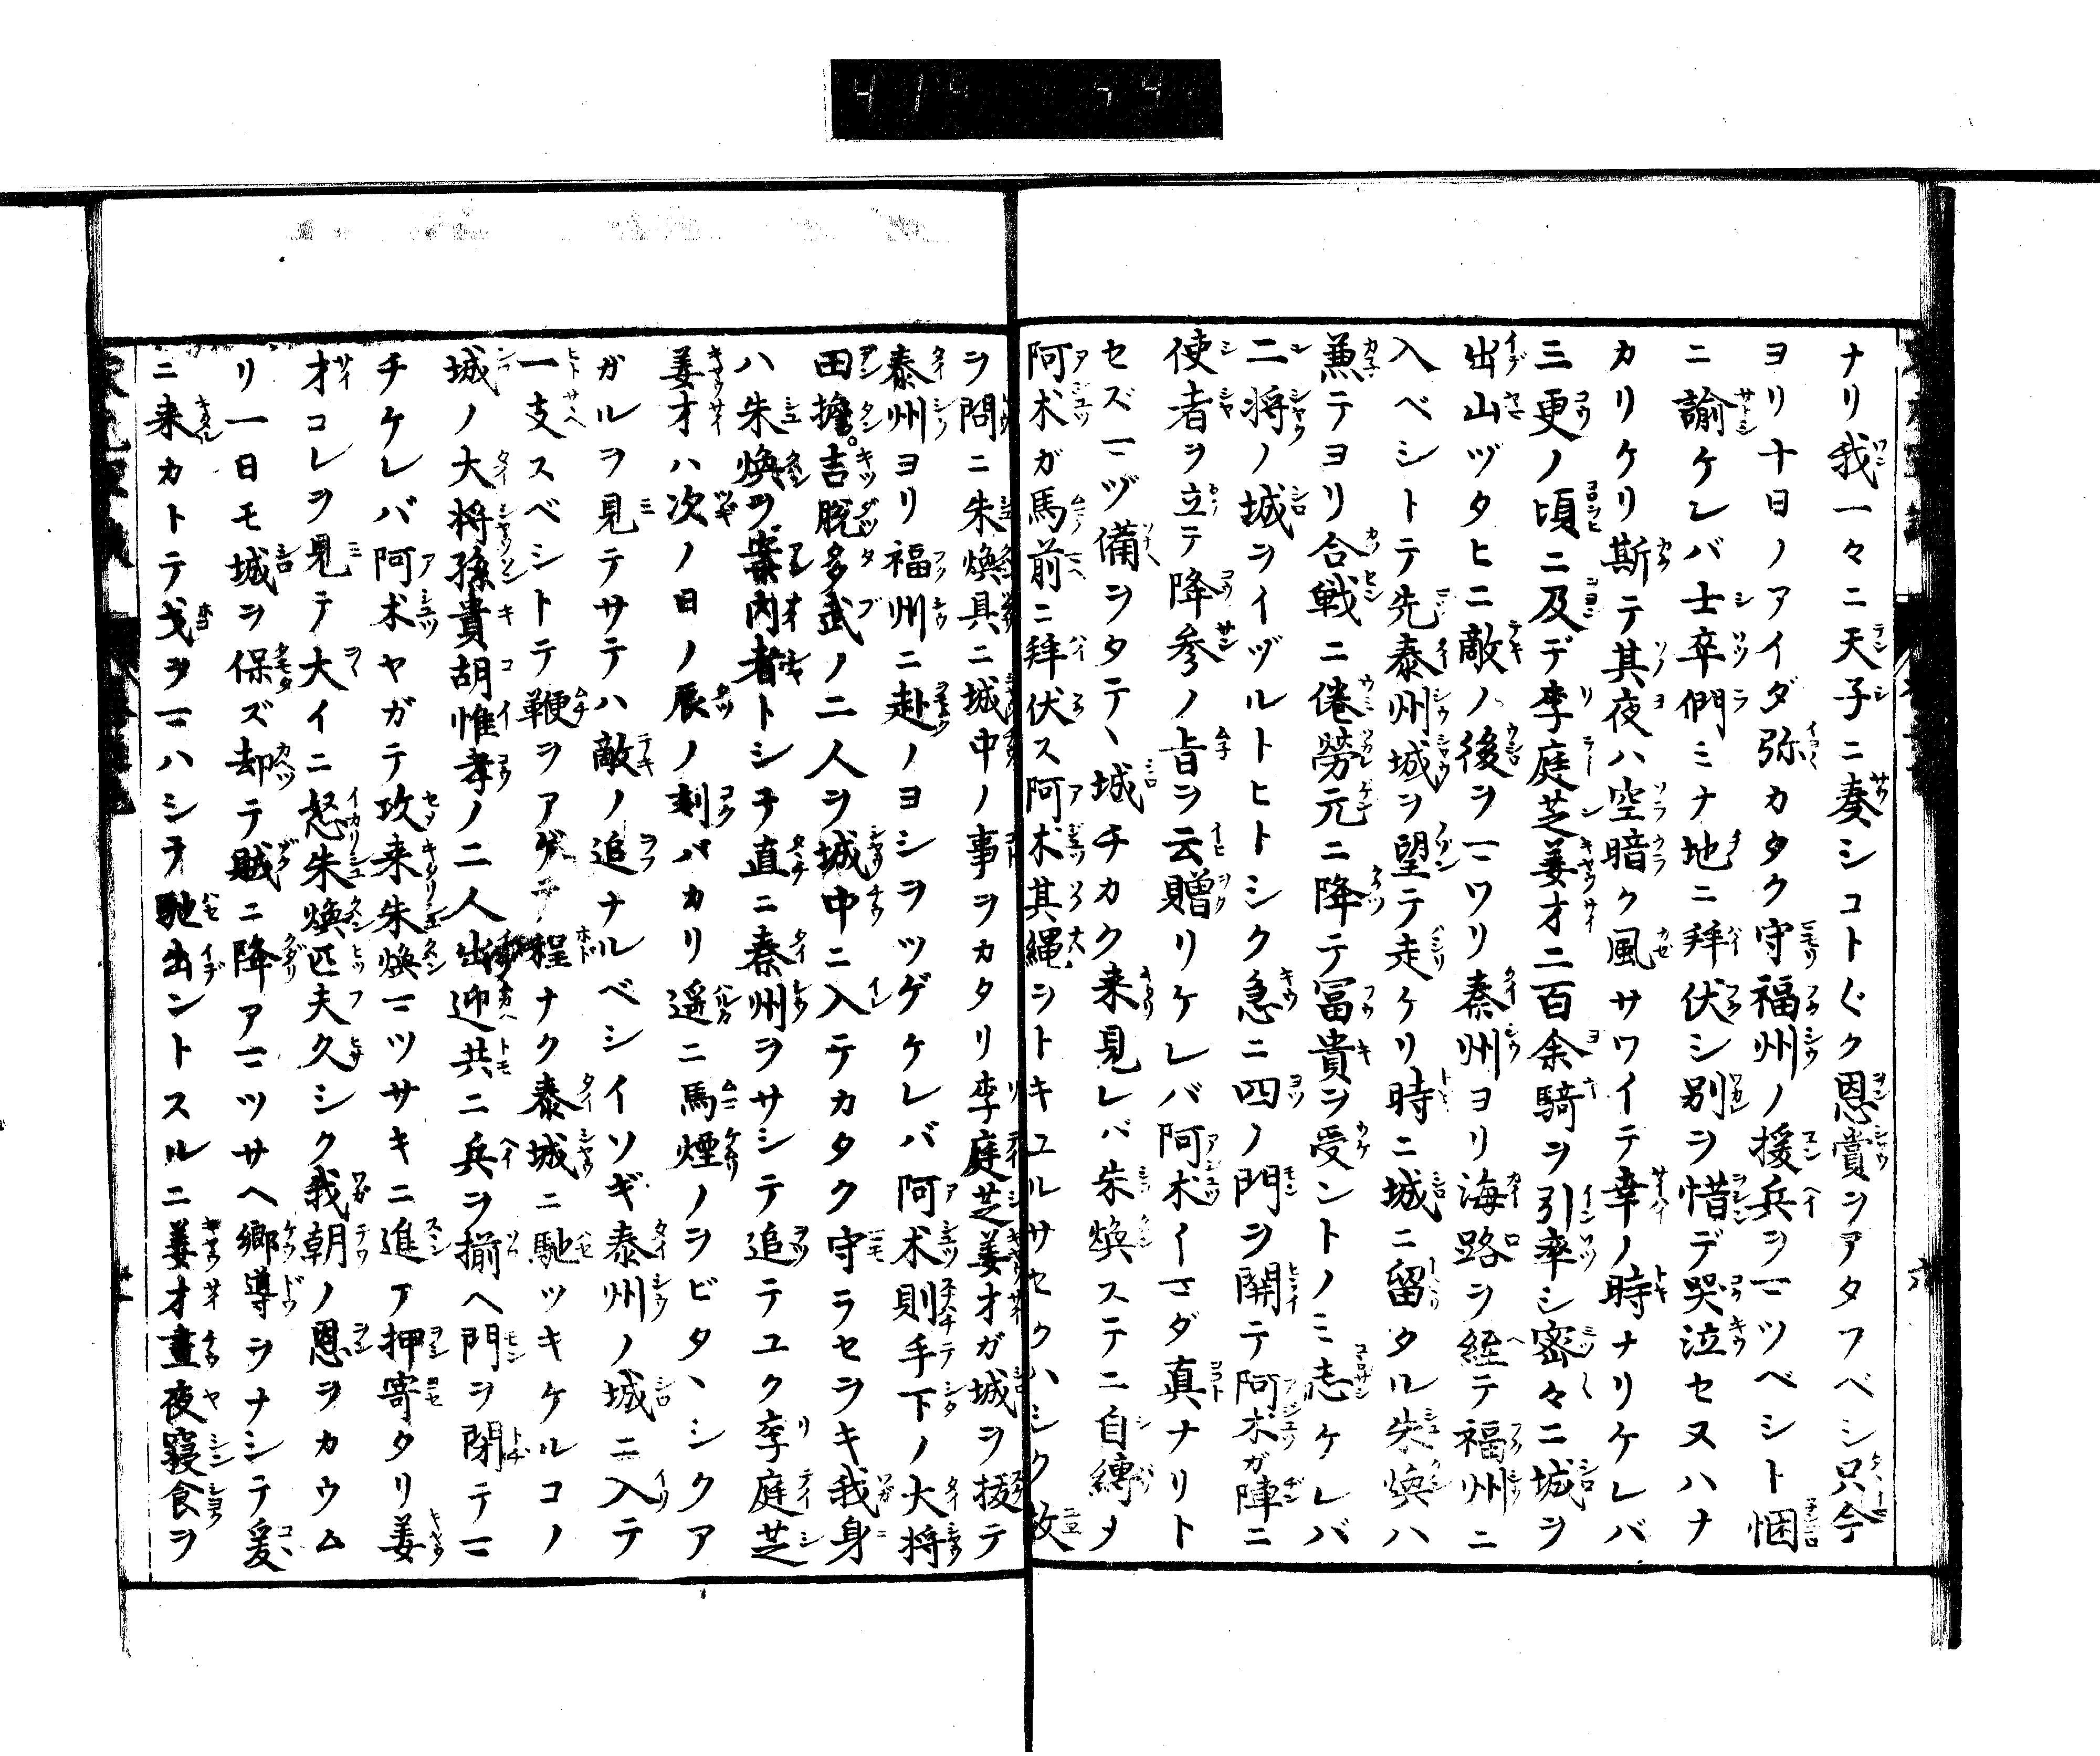 ナリ我一々ニ天子ニ奏シコト〲ク恩賞ヲアタフベシ只今
ヨリ十日ノアイダ弥カタク守福州ノ援兵ヲマツベシト悃
ニ諭ケレバ士卒們ミナ地ニ拜伏シ別ヲ惜デ哭泣セヌハナ
カリケリ斯テ其夜ハ空暗ク風サワイテ幸ノ時ナリケレバ
三更ノ頃ニ及デ李庭芝姜才二百余騎ヲ引率シ密々ニ城ヲ
出山ヅタヒニ敵ノ後ヲマワリ泰州ヨリ海路ヲ経テ福州ニ
入ベシトテ先泰州城ヲ望テ走ケリ時ニ城ニ留タル朱煥ハ
兼テヨリ合戦ニ倦勞元ニ降テ冨貴ヲ受ントノミ志ケレバ
二将ノ城ヲイヅルトヒトシク急ニ四ノ門ヲ開テ阿朮ガ陣ニ
使者ヲ立テ降参ノ旨ヲ云贈リケレバ阿朮イマダ真ナリト
セズマヅ備ヲタテヽ城チカク来見レバ朱煥ステニ自縛メ
阿朮ガ馬前ニ拜伏ス阿朮其縄ヲトキユルサセクハシク故
ヲ問ニ朱煥具ニ城中ノ事ヲカタリ李庭芝姜才ガ城ヲ拔テ
泰州ヨリ福州ニ赴ノヨシヲツゲケレバ阿朮則手下ノ大将
田擔吉脱多武ノ二人ヲ城中ニ入テカタク守ラセヲキ我身
ハ朱煥ヲ案内者トシテ直ニ泰州ヲサシテ追テユク李庭芝
姜才ハ次ノ日ノ辰ノ刻バカリ遥ニ馬煙ノヲビタヽシクア
ガルヲ見テサテハ敵ノ追ナルベシイソギ泰州ノ城ニ入テ
一支スベシトテ鞭ヲアゲテ程ナク泰城ニ馳ツキケルコノ
城ノ大将孫貴胡惟孝ノ二人出迎共ニ兵ヲ揃ヘ門ヲ閉テマ
チケレバ阿朮ヤガテ攻来朱煥マツサキニ進ア押寄タリ姜
才コレヲ見テ大イニ怒朱煥匹夫久シク我朝ノ恩ヲカウム
リ一日モ城ヲ保ズ却テ賊ニ降アマツサヘ郷導ヲナシテ爰
ニ来カトテ戈ヲマハシテ馳出ントスルニ姜才晝夜寝食ヲ